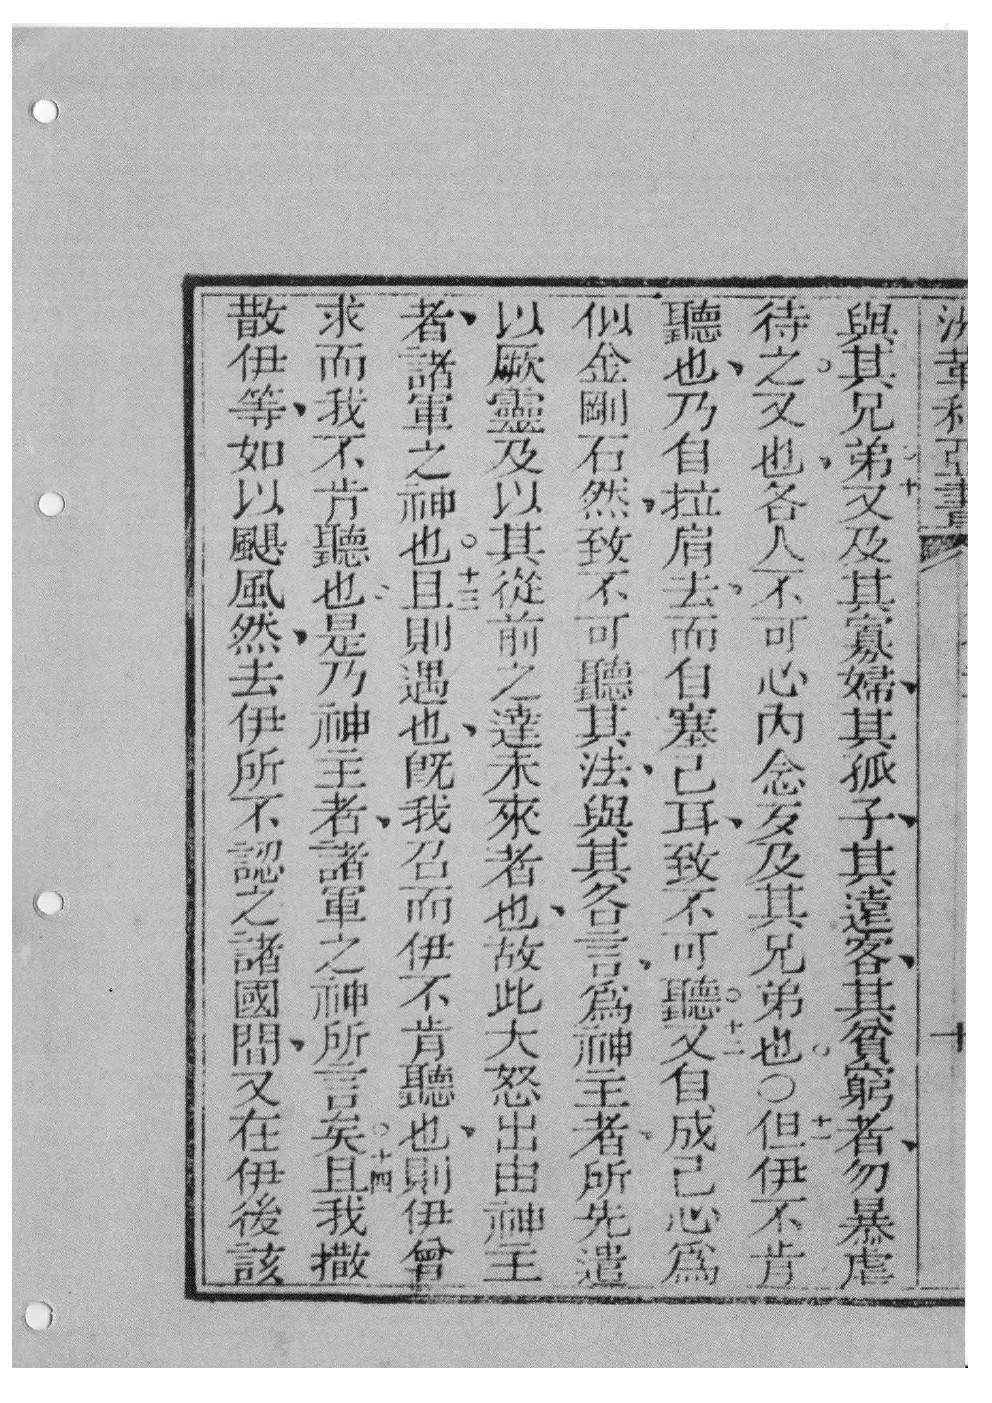 與其兄弟○十又及其寡婦、其孤子、其遠客、其貧窮者、勿暴虐
待之○又也、各人不可心內念歹及其兄弟也○○十一但伊不肯
聽也、乃自拉肩去、而自塞己耳、致不可聽○十二又自成己心為
似金剛石然、致不可聽其法、與其各言、為神主者、所先遣
以厥靈及以其從前之達未來者也、故此大怒出由神主
者、諸軍之神也○十三且則遇也、既我召而伊不肯聽也、則伊曾
求而我不肯聽也、是乃神主者、諸軍之神所言矣○十四且我撒
散伊等、如以颶風然、去伊所不認之諸國間、又在伊後該